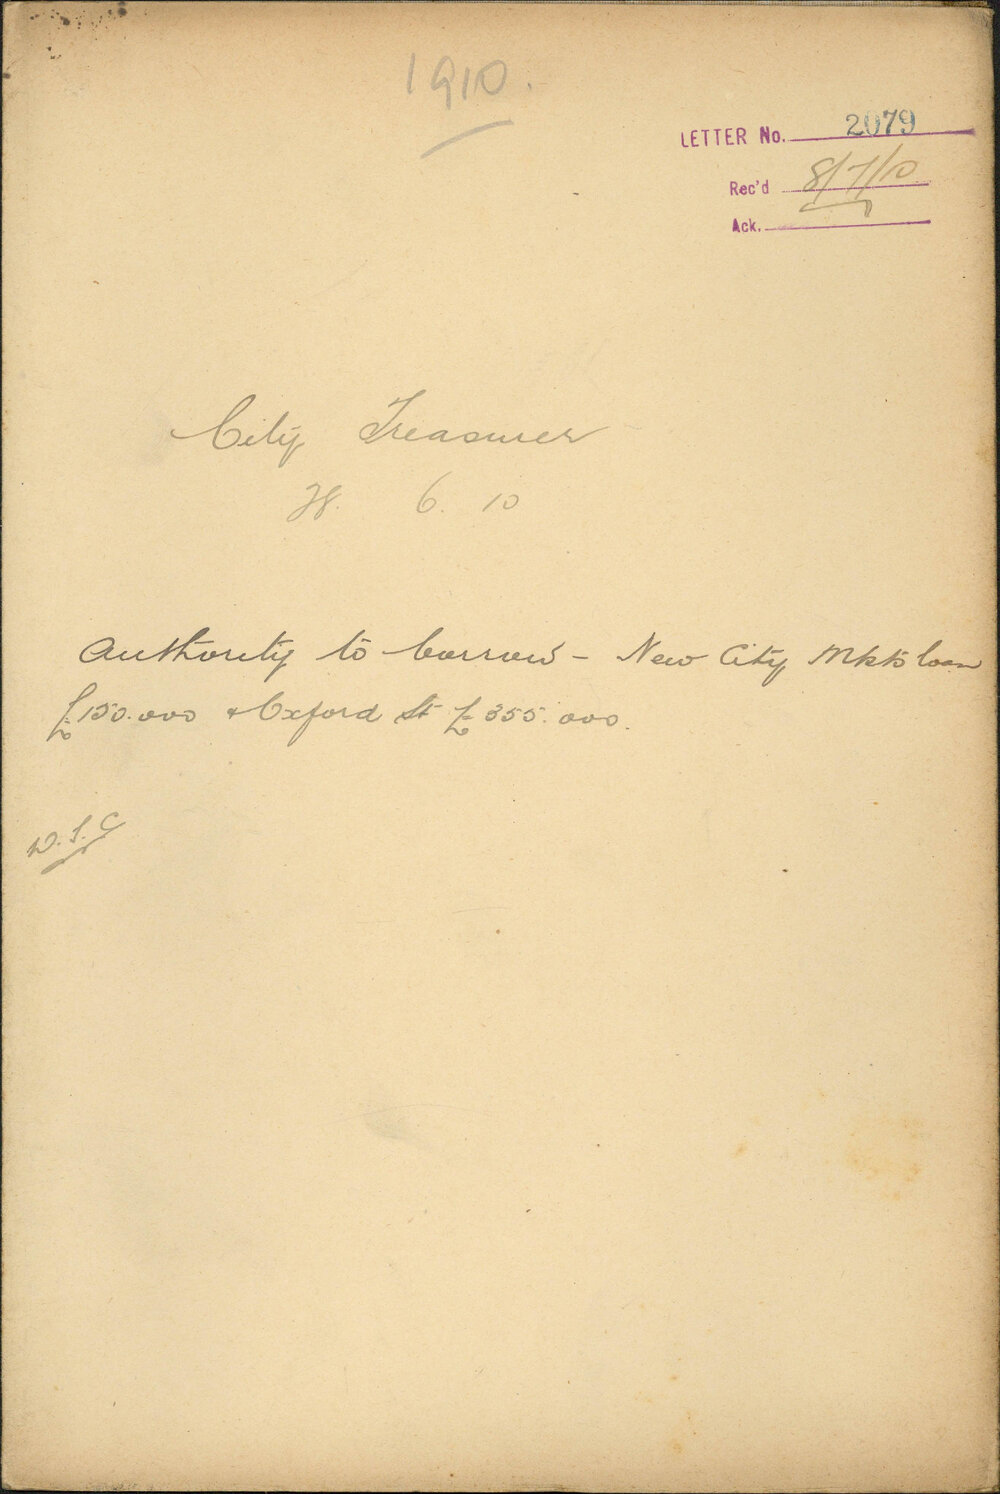 1910.
LETTER No. 2079
Rec'd 8/7/10
Ack.
City Treasurer
6. 10
Authority to borrow - New City Mkts loan
£150.000 & Oxford St £355.000.